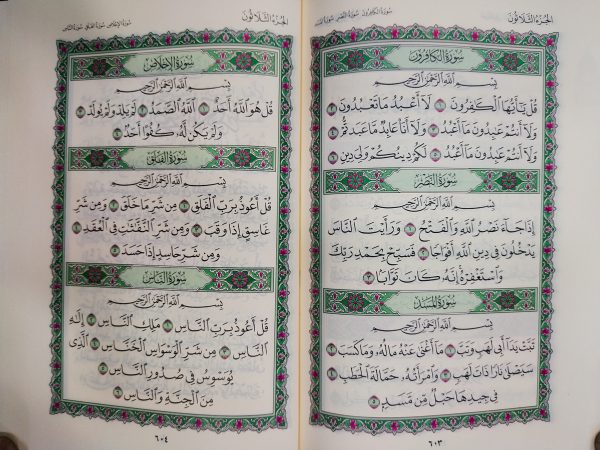 سورة الكافرون سورة النصر سورة المسد
الجزء الثلاثون
سُورَةُ الكَافِرُونَ
بِسْمِ اللَّهِ الرَّحْمَٰنِ الرَّحِيمِ
قُلْ يَٰٓأَيُّهَا ٱلْكَٰفِرُونَ ١ لَآ أَعْبُدُ مَا تَعْبُدُونَ ٢
وَلَآ أَنتُمْ عَٰبِدُونَ مَآ أَعْبُدُ ٣ وَلَآ أَنَا۠ عَابِدٌ مَّا عَبَدتُّمْ ٤
وَلَآ أَنتُمْ عَٰبِدُونَ مَآ أَعْبُدُ ٥ لَكُمْ دِينُكُمْ وَلِىَ دِينِ ٦
سُورَةُ النَّصْرِ
بِسْمِ اللَّهِ الرَّحْمَٰنِ الرَّحِيمِ
إِذَا جَآءَ نَصْرُ ٱللَّهِ وَٱلْفَتْحُ ١ وَرَأَيْتَ ٱلنَّاسَ
يَدْخُلُونَ فِى دِينِ ٱللَّهِ أَفْوَاجًا ٢ فَسَبِّحْ بِحَمْدِ رَبِّكَ
وَٱسْتَغْفِرْهُ إِنَّهُۥ كَانَ تَوَّابًۢا ٣
سُورَةُ المَسَدِ
بِسْمِ اللَّهِ الرَّحْمَٰنِ الرَّحِيمِ
تَبَّتْ يَدَآ أَبِى لَهَبٍ وَتَبَّ ١ مَآ أَغْنَىٰ عَنْهُ مَالُهُۥ وَمَا كَسَبَ ٢
سَيَصْلَىٰ نَارًا ذَاتَ لَهَبٍ ٣ وَٱمْرَأَتُهُۥ حَمَّالَةَ ٱلْحَطَبِ ٤
فِى جِيدِهَا حَبْلٌ مِّن مَّسَدٍۭ ٥
٦٠٣
سورة الإخلاص سورة الفلق سورة الناس
الجزء الثلاثون
سُورَةُ الإِخْلَاصِ
بِسْمِ اللَّهِ الرَّحْمَٰنِ الرَّحِيمِ
قُلْ هُوَ ٱللَّهُ أَحَدٌ ١ ٱللَّهُ ٱلصَّمَدُ ٢ لَمْ يَلِدْ وَلَمْ يُولَدْ ٣
وَلَمْ يَكُن لَّهُۥ كُفُوًا أَحَدٌۢ ٤
سُورَةُ الفَلَقِ
بِسْمِ اللَّهِ الرَّحْمَٰنِ الرَّحِيمِ
قُلْ أَعُوذُ بِرَبِّ ٱلْفَلَقِ ١ مِن شَرِّ مَا خَلَقَ ٢ وَمِن شَرِّ
غَاسِقٍ إِذَا وَقَبَ ٣ وَمِن شَرِّ ٱلنَّفَّٰثَٰتِ فِى ٱلْعُقَدِ ٤
وَمِن شَرِّ حَاسِدٍ إِذَا حَسَدَ ٥
سُورَةُ النَّاسِ
بِسْمِ اللَّهِ الرَّحْمَٰنِ الرَّحِيمِ
قُلْ أَعُوذُ بِرَبِّ ٱلنَّاسِ ١ مَلِكِ ٱلنَّاسِ ٢ إِلَٰهِ
ٱلنَّاسِ ٣ مِن شَرِّ ٱلْوَسْوَاسِ ٱلْخَنَّاسِ ٤ ٱلَّذِى
يُوَسْوِسُ فِى صُدُورِ ٱلنَّاسِ ٥
مِنَ ٱلْجِنَّةِ وَٱلنَّاسِ ٦
٦٠٤